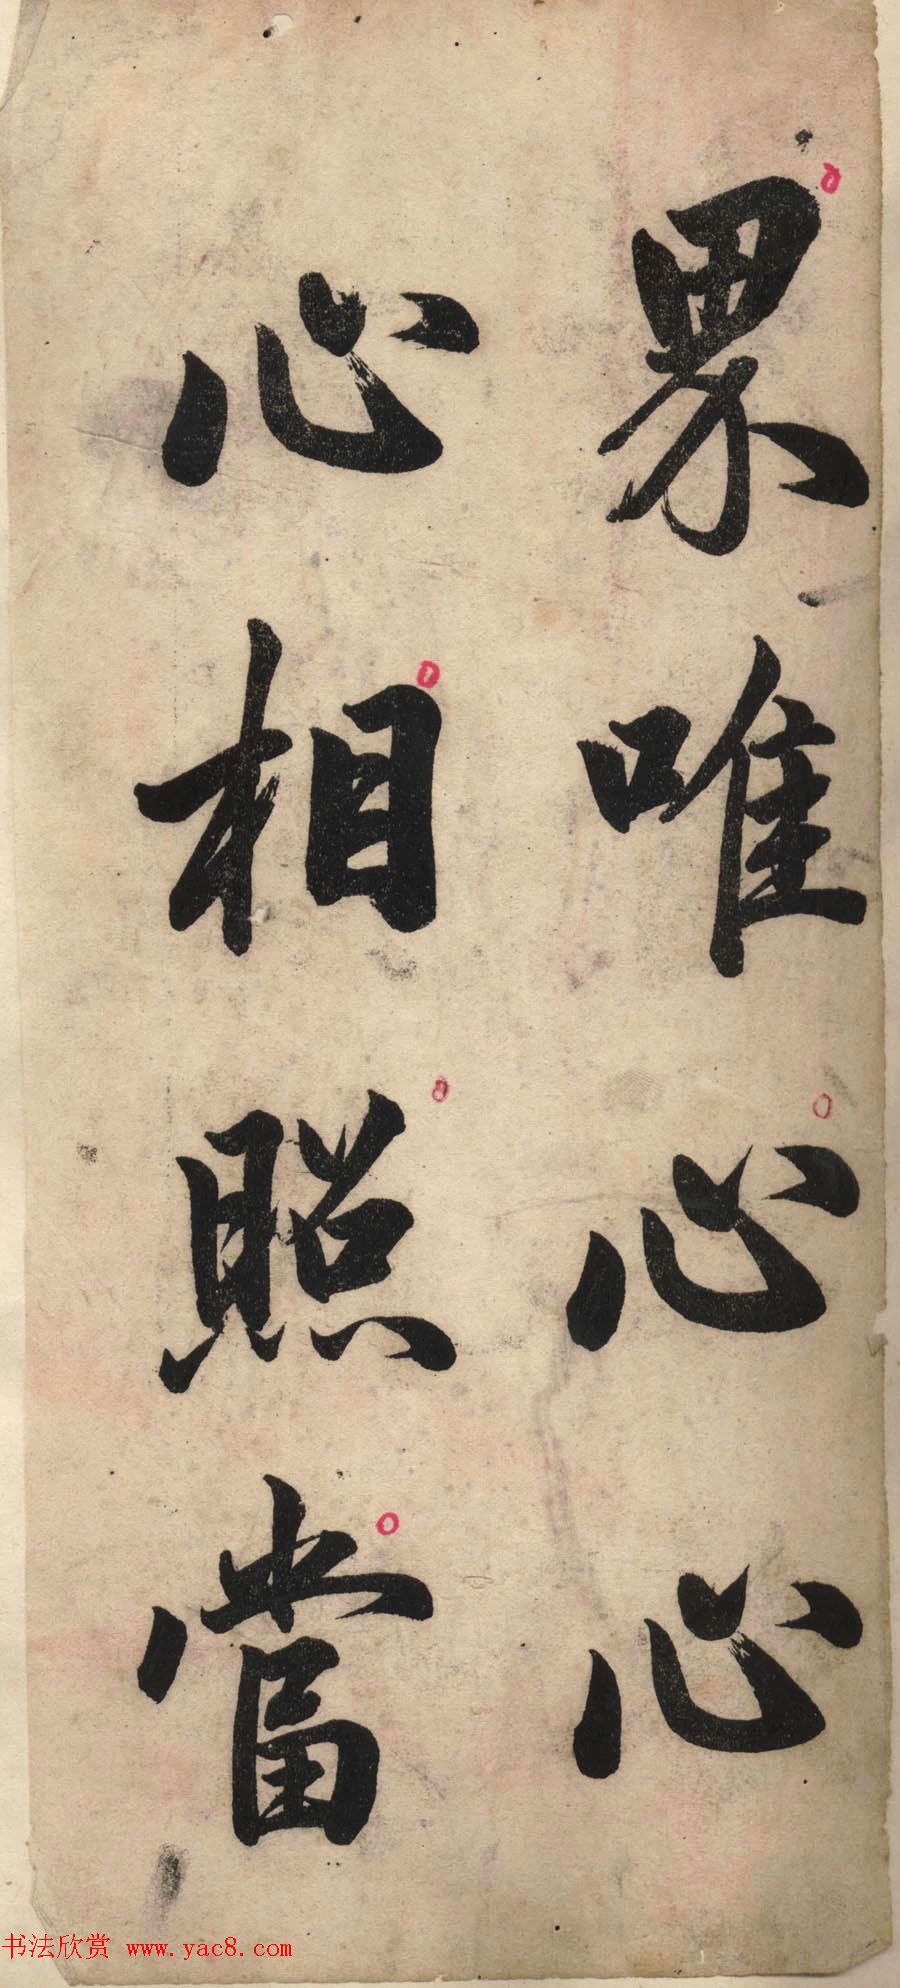 界唯心心
心相照當
书法欣赏 www.yac8.com